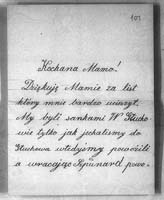 101
Kochana Mamo!
Dziękuję Mamie za list
który mnie bardzo ucieszył.
My byli sankami W Głucho
wie tylko jak jechalismy do
Głuchowa wtedyśmy powózili
a wracając powo-